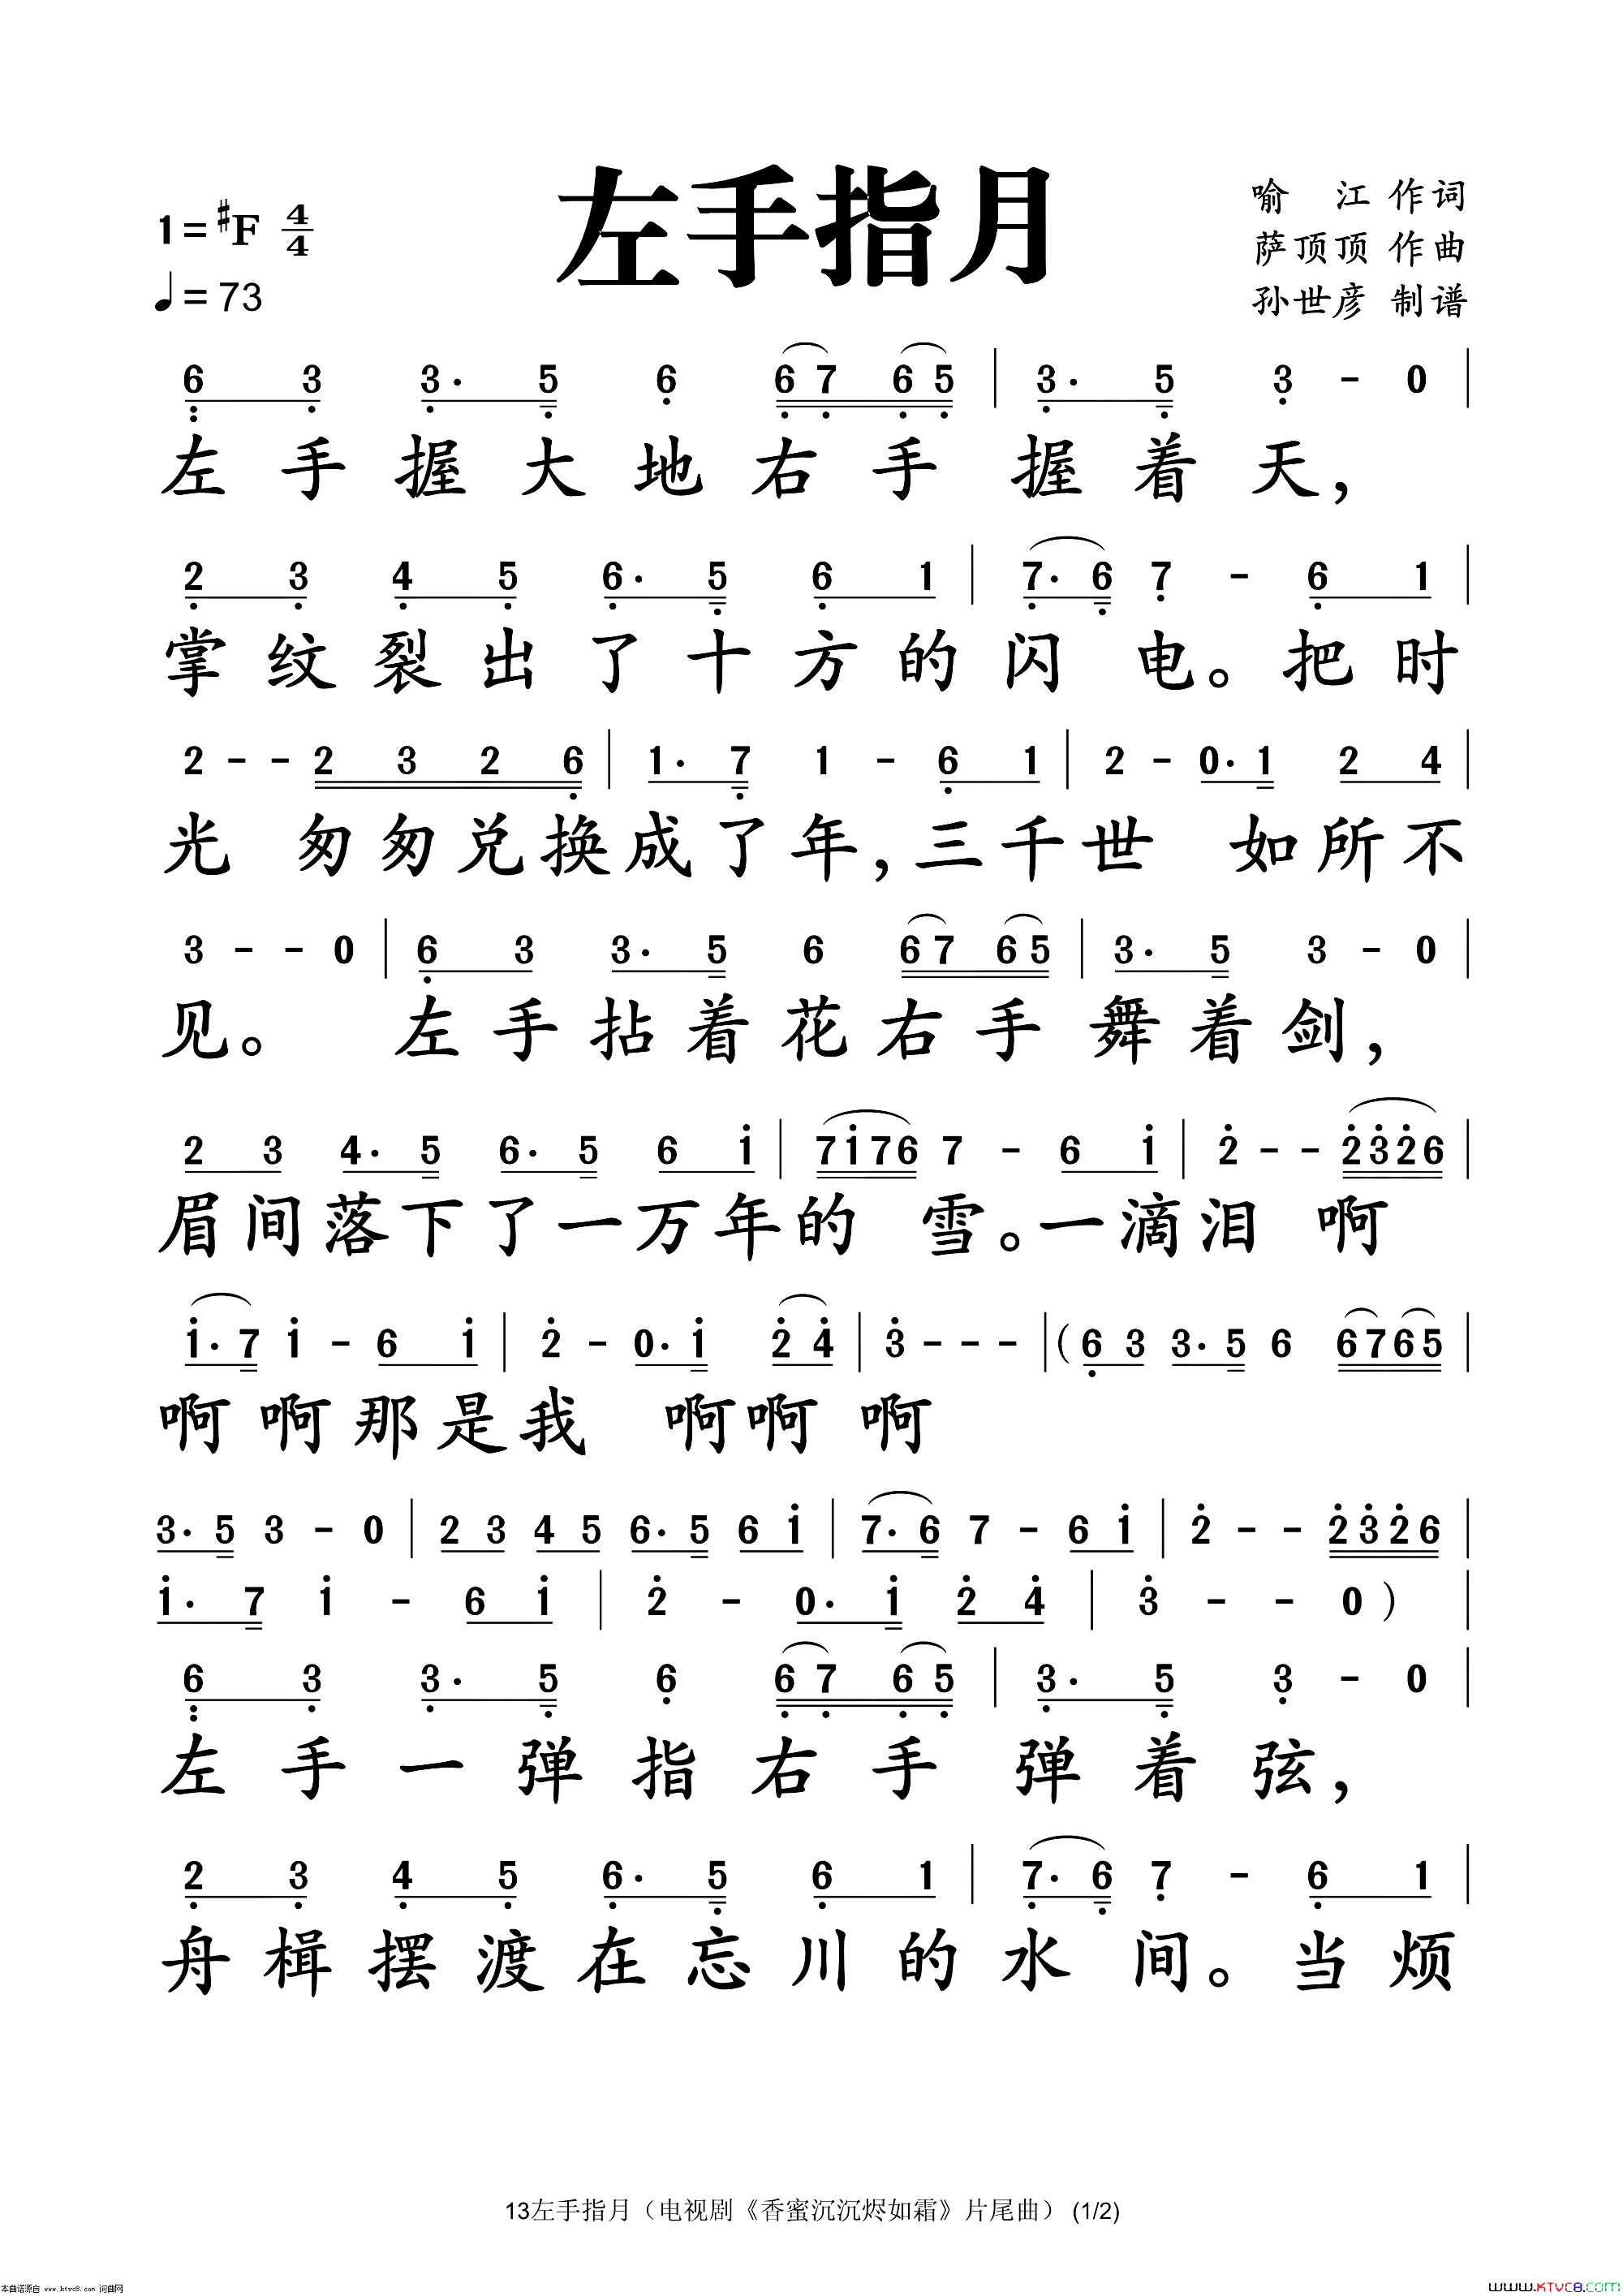 左手指月
1=#F 4/4
♩=73
喻 江 作词
萨顶顶 作曲
孙世彦 制谱
6 3 3· 5 6 6 7 6 5 | 3· 5 3 - 0 |
左手握大地右手握着天,
2 3 4 5 6· 5 6 1 | 7· 6 7 - 6 1 |
掌纹裂出了十方的闪电。把时
2 - - 2 3 2 6 | 1· 7 1 - 6 1 | 2 - 0· 1 2 4 |
光 匆匆兑换成了年,三千世 如所不
3 - - 0 | 6 3 3· 5 6 6 7 6 5 | 3· 5 3 - 0 |
见。 左手拈着花右手舞着剑,
2 3 4· 5 6· 5 6 i | 7 i 7 6 7 - 6 i | 2 - - 2 3 2 6 |
眉间落下了一万年的 雪。一滴泪 啊
i· 7 i - 6 i | 2 - 0· i 2 4 | 3 - - - | (6 3 3· 5 6 6 7 6 5 |
啊啊那是我 啊啊啊
3· 5 3 - 0 | 2 3 4 5 6· 5 6 i | 7· 6 7 - 6 i | 2 - - 2 3 2 6 |
i· 7 i - 6 i | 2 - 0· i 2 4 | 3 - - 0 ) |
6 3 3· 5 6 6 7 6 5 | 3· 5 3 - 0 |
左手一弹指右手弹着弦,
2 3 4 5 6· 5 6 1 | 7· 6 7 - 6 1 |
舟楫摆渡在忘川的水间。当烦
13左手指月（电视剧《香蜜沉沉烬如霜》片尾曲） (1/2)
本曲谱源自 www.ktvc8.com 词曲网
WWW.KTVC8.COM